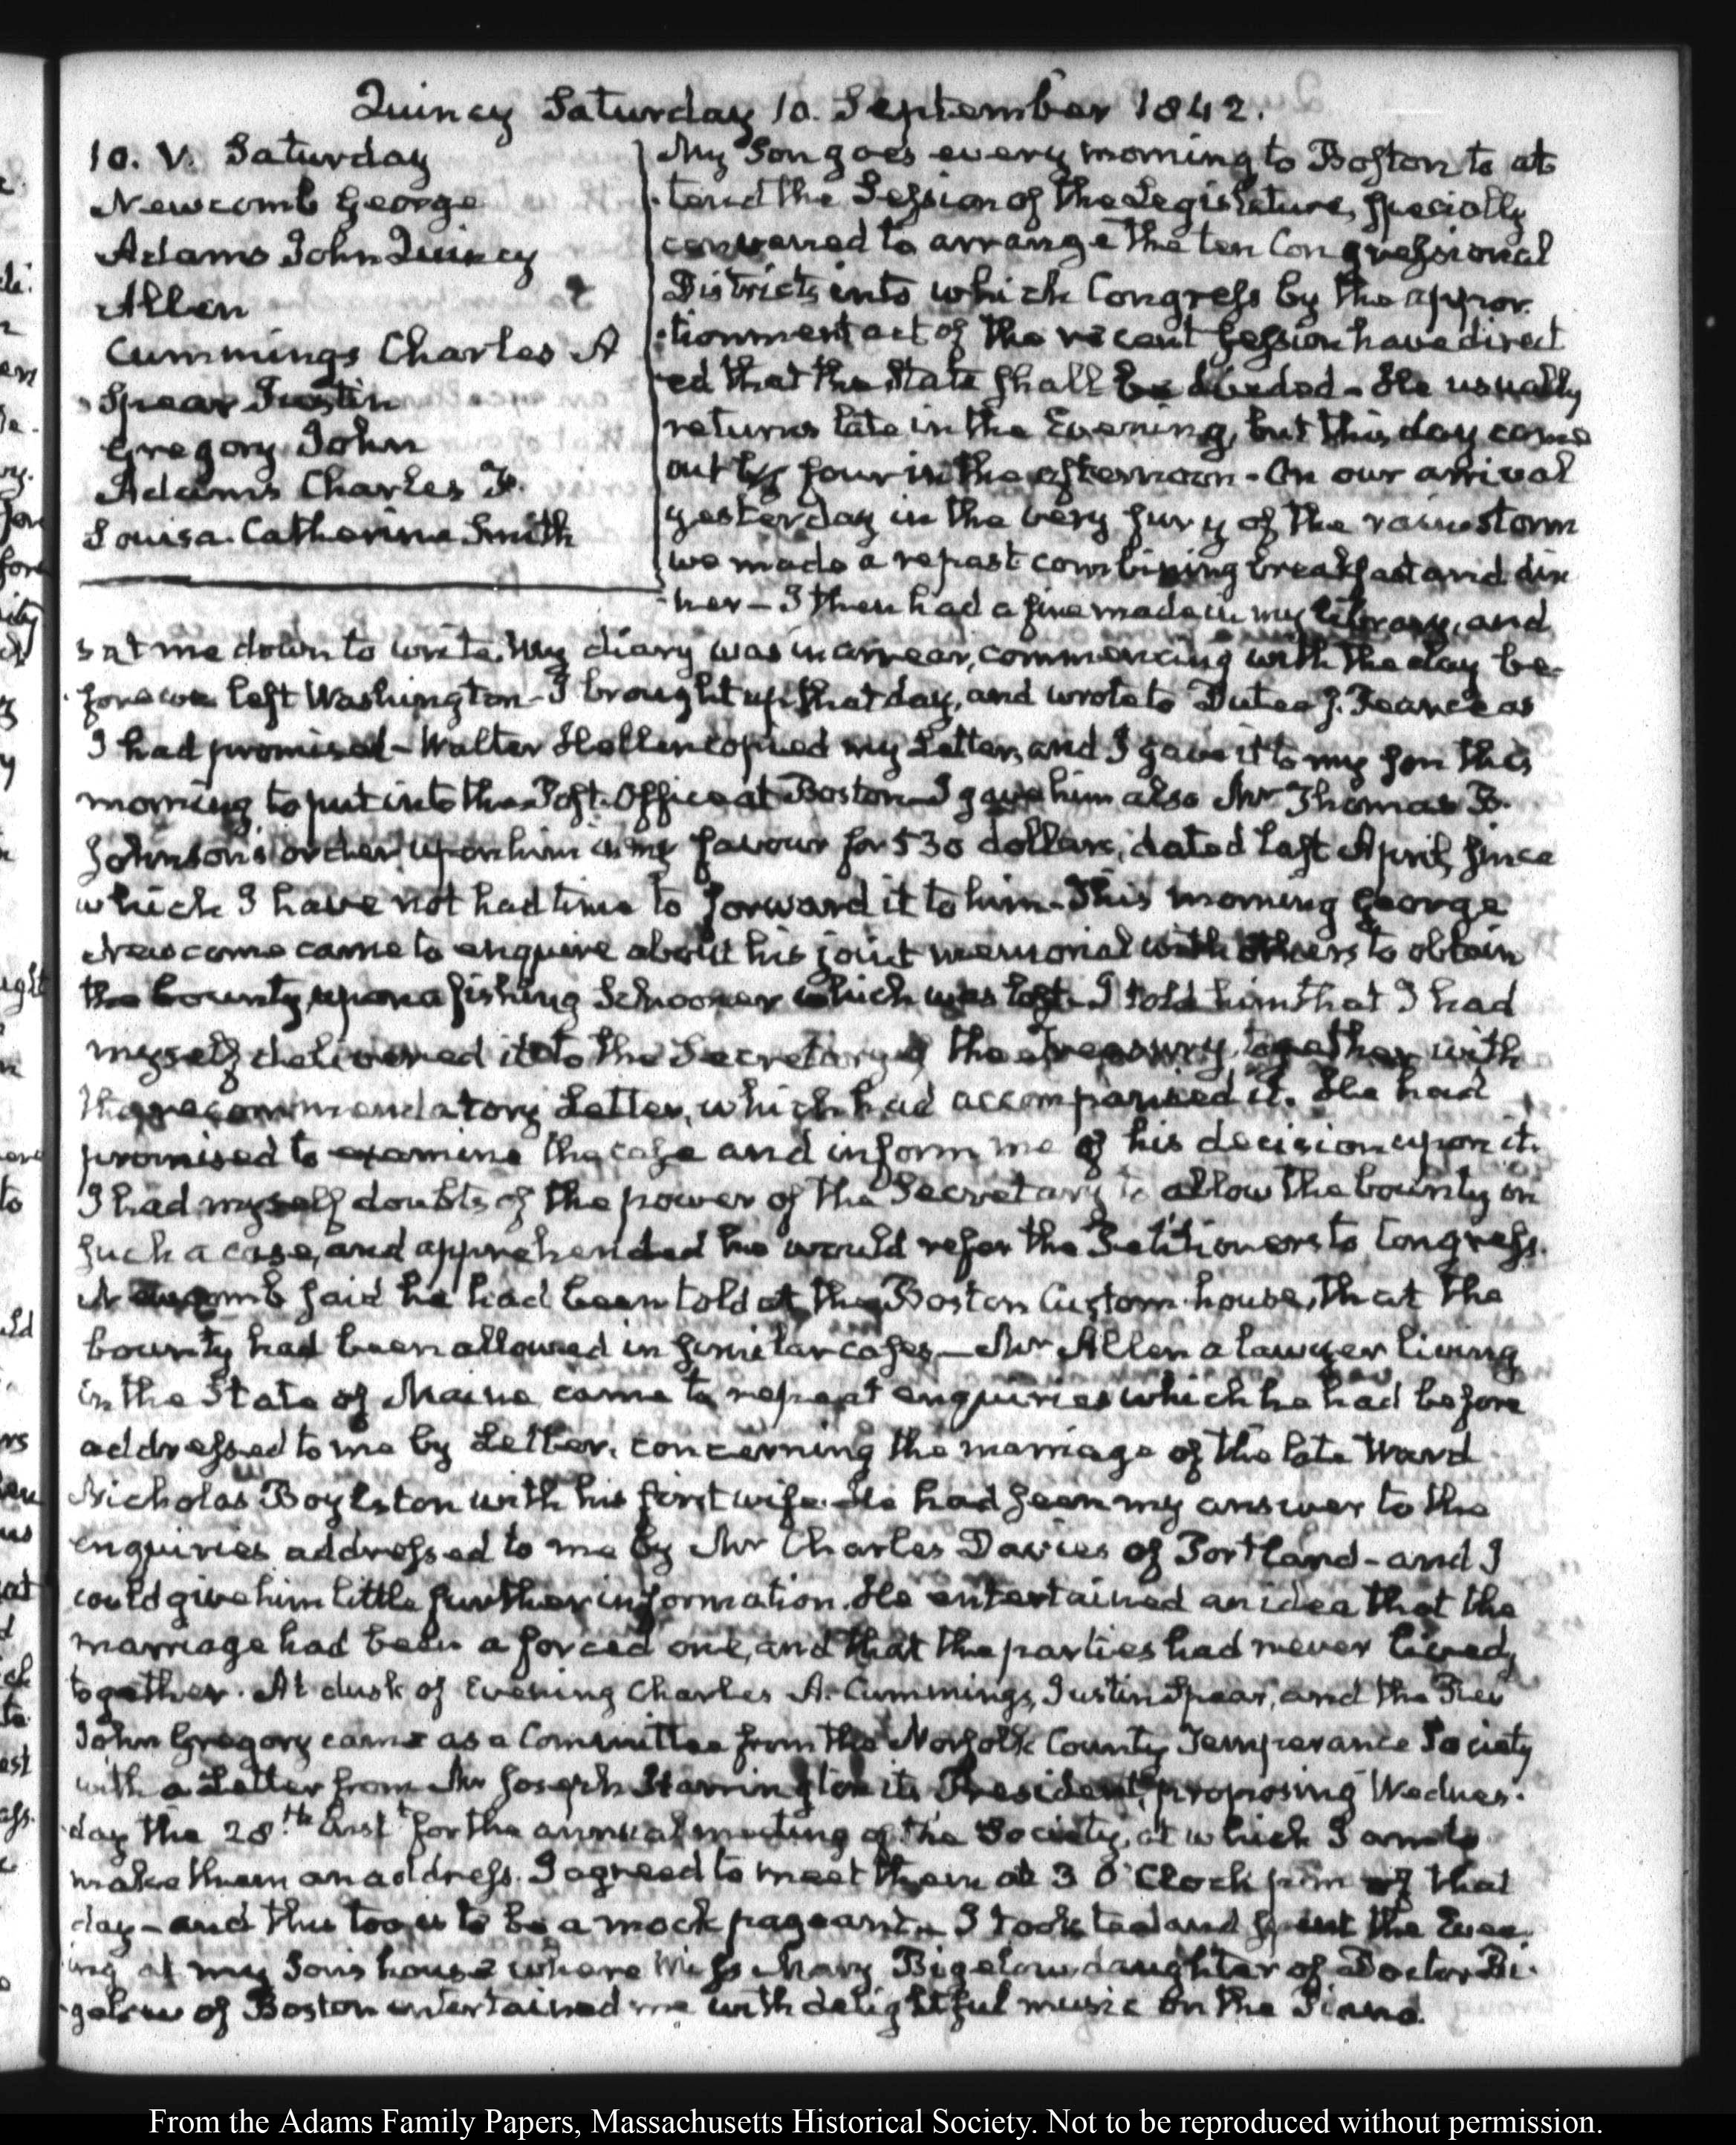 Quincy Saturday 10. September 1842.
10. V. Saturday
Newcomb George
Adams John Quincy
Allen
Cummings Charles A
Spear Justin
Gregory John
Adams Charles F.
Louisa Catherine Smith
My Son goes every morning to Boston to at
tend the Session of the Legislature, specially
convened to arrange the ten Congressional
Districts into which Congress by the appor
tionment act of the recent Session have direct
ed that the State shall be divided - He usually
returns late in the Evening, but this day came
out by four in the afternoon - On our arrival
yesterday in the very fury of the rain storm
we made a repast combining breakfast and din
ner - I then had a fire made in my library, and
sat me down to write. My diary was in arrear, commencing with the day be-
fore we left Washington - I brought up that day, and wrote to Dutee J. Pearce as
I had promised - Walter Hellen copied my Letter, and I gave it to my Son this
morning to put into the Post-Office at Boston - I gave him also Mr Thomas B.
Johnson's order upon him in my favour for 530 dollars, dated last April, since
which I have not had time to forward it to him - This morning George
Newcome came to enquire about his joint memorial with others to obtain
the bounty upon a fishing Schooner which was lost - I told him that I had
myself delivered it to the Secretary of the Treasury, together with
the recommendatory Letter, which had accompanied it. He had
promised to examine the case and inform me of his decision upon it.
I had myself doubts of the power of the Secretary to allow the bounty in
such a case, and apprehended he would refer the Petitioners to Congress.
Newcomb said he had been told at the Boston Custom-house, that the
bounty had been allowed in similar cases - Mr Allen a lawyer living
in the State of Maine came to repeat enquiries which he had before
addressed to me by Letter, concerning the marriage of the late Ward
Nicholas Boylston with his first wife. He had seen my answer to the
enquiries addressed to me by Mr Charles Davies of Portland - and I
could give him little further information. He entertained an idea that the
marriage had been a forced one, and that the parties had never lived
together. At dusk of Evening Charles A. Cummings, Justin Spear, and the Rev
John Gregory came as a Committee from the Norfolk County Temperance Society
with a Letter from Mr Joseph Harrington its President, proposing Wednes-
day the 28th inst for the annual meeting of the Society, at which I am to
make them an address. I agreed to meet them at 3 O'Clock p.m of that
day - and this too is to be a mock pageant - I took tea and spent the Even
ing at my Son's house where Miss Mary Bigelow daughter of Doctor Bi-
gelow of Boston entertained me with delightful music on the Piano.
From the Adams Family Papers, Massachusetts Historical Society. Not to be reproduced without permission.